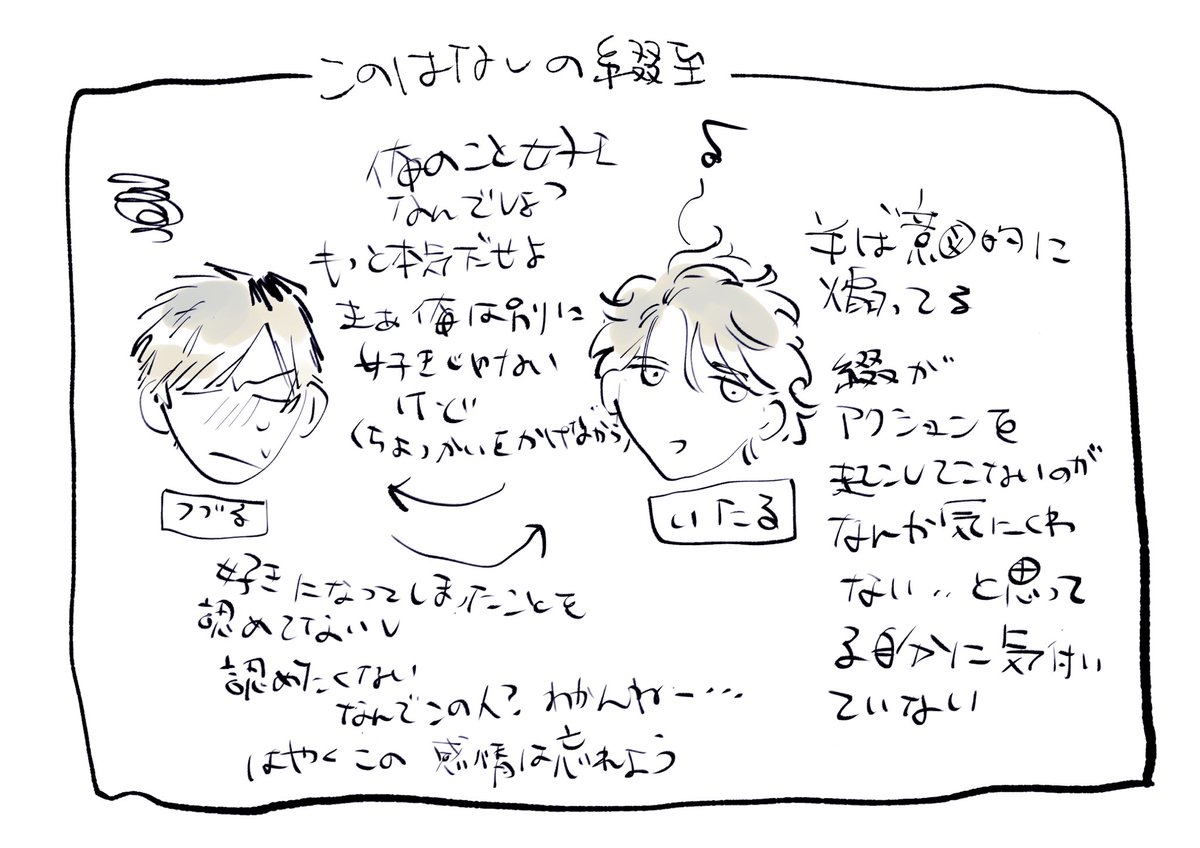 このはなしの綴至
俺のこと好き
なんでしょ?
もっと本気だせよ
まぁ俺は別に
好きじゃない
けど
(ちょっかいをかけながら)
つづる
いたる
半ば意図的に
煽ってる
綴が
アクションを
起こしてこないのが
なんか気にくわ
ない..と思って
る自分に気付い
ていない
好きになってしまったことを
認めてないし
認めたくない
なんでこの人?わかんねー…
はやくこの感情は忘れよう